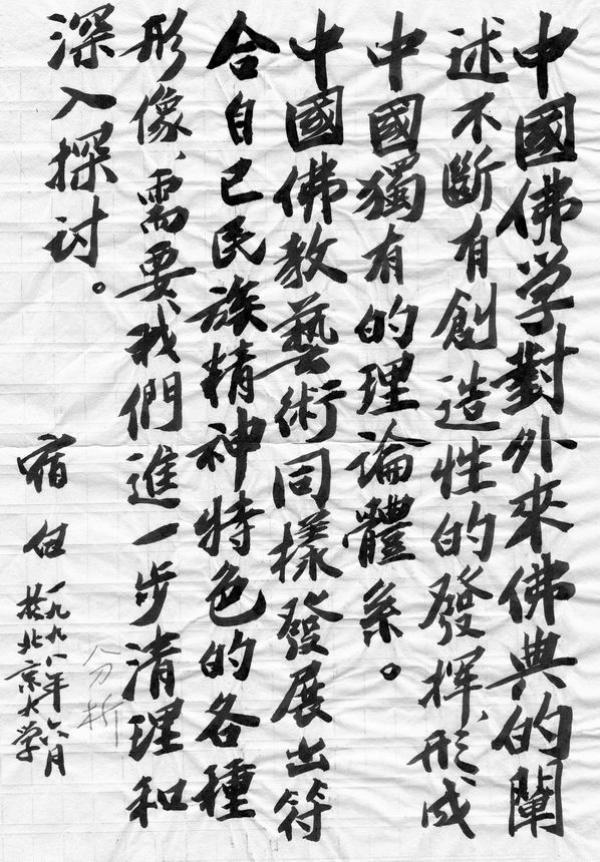 中國佛学對外來佛典的闡
述不斷有創造性的發揮、形成
中國獨有的理論體系。
中國佛教藝術同樣發展出符
合自己民族精神特色的各種
形像、需要我們進一步清理和
深入探讨。
分析
宿白
一九九八年六月
於北京大学